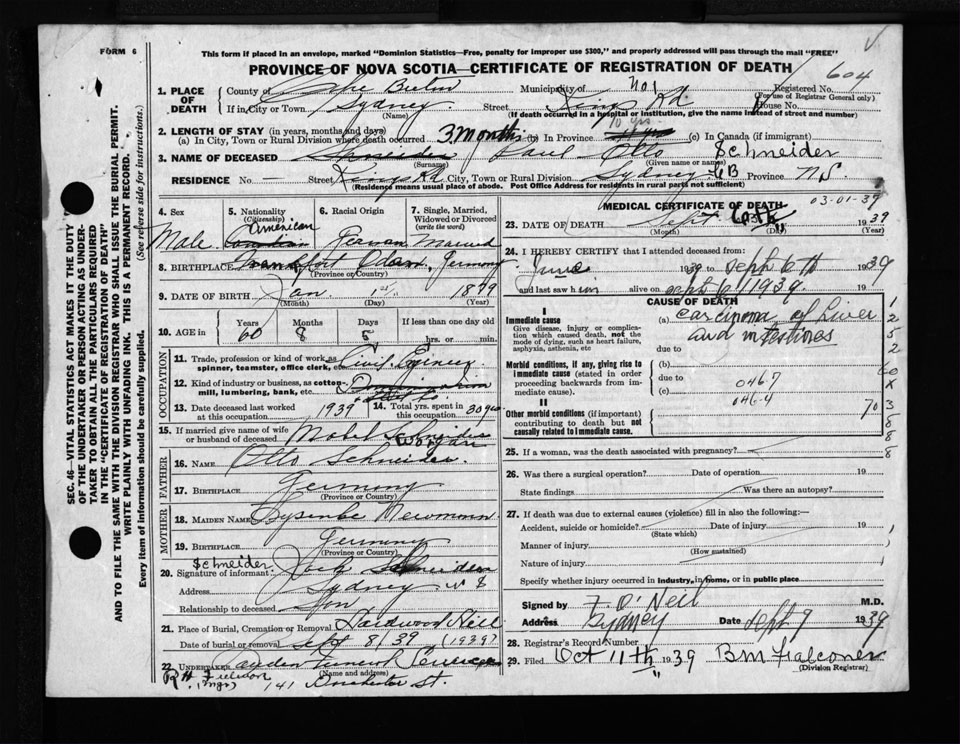 FORM 6
This form if placed in an envelope, marked "Dominion Statistics—Free, penalty for improper use $300," and properly addressed will pass through the mail "FREE"
PROVINCE OF NOVA SCOTIA—CERTIFICATE OF REGISTRATION OF DEATH
604
SEC. 46—VITAL STATISTICS ACT MAKES IT THE DUTY
OF THE UNDERTAKER OR PERSON ACTING AS UNDER-
TAKER TO OBTAIN ALL THE PARTICULARS REQUIRED
IN THE "CERTIFICATE OF REGISTRATION OF DEATH"
AND TO FILE THE SAME WITH THE DIVISION REGISTRAR WHO SHALL ISSUE THE BURIAL PERMIT.
WRITE PLAINLY WITH UNFADING INK. THIS IS A PERMANENT RECORD.
Every item of information should be carefully supplied. (See reverse side for instructions.)
1. PLACE OF DEATH County of Cape Breton Municipality of No 1 Registered No.
(For use of Registrar General only)
If in City or Town Sydney Street Kings Rd House No.
(Name) (If death occurred in a hospital or institution, give the name instead of street and number)
2. LENGTH OF STAY (in years, months and days)
(a) In City, Town or Rural Division where death occurred 3 months (b) In Province 10 yrs. (c) In Canada (if immigrant)
3. NAME OF DECEASED Shneider Paul Otto Schneider
(Surname) (Given name or names)
RESIDENCE No. — Street Kings Rd City, Town or Rural Division Sydney CB Province N.S.
(Residence means usual place of abode. Post Office Address for residents in rural parts not sufficient)
4. Sex Male
5. Nationality (Citizenship) American Canadian
6. Racial Origin German
7. Single, Married, Widowed or Divorced (write the word) Married
8. BIRTHPLACE Frankfort Odam, Germany
(Province or Country)
9. DATE OF BIRTH Jan. 1st 1879
(Month) (Day) (Year)
10. AGE in Years Months Days If less than one day
60 8 5 hrs. or min.
OCCUPATION
11. Trade, profession or kind of work as spinner, teamster, office clerk, etc. Civil Engineer
12. Kind of industry or business, as cotton mill, lumbering, bank, etc.
13. Date deceased last worked at this occupation 1939
14. Total yrs. spent in this occupation 30
15. If married give name of wife or husband of deceased Mabel
FATHER
16. NAME Otto Schneider
17. BIRTHPLACE Germany
(Province or Country)
MOTHER
18. MAIDEN NAME Newmann
19. BIRTHPLACE Germany
(Province or Country)
Schneider
20. Signature of informant Jack Schneider
Address Sydney N S
Relationship to deceased Son
21. Place of Burial, Cremation or Removal Hardwood Hill
Date of burial or removal Sept 8/39 (1939?)
22. UNDERTAKER Funeral
(Name and address)
R H (Mgr) 141 Dorchester St.
MEDICAL CERTIFICATE OF DEATH
03-01-39
23. DATE OF DEATH Sept 6th 1939
(Month) (Day) (Year)
24. I HEREBY CERTIFY that I attended deceased from:
June 1939 to Sept 6th 1939
and last saw him alive on Sept 6 1939
CAUSE OF DEATH
I
Immediate cause
Give disease, injury or complication which caused death, not the mode of dying, such as heart failure, asphyxia, asthenia, etc
(a) Carcinoma of Liver and intestines
due to
Morbid conditions, if any, giving rise to immediate cause (stated in order proceeding backwards from immediate cause).
(b)
due to
(c) 046-7
046-4
II
Other morbid conditions (if important) contributing to death but not causally related to immediate cause.
70
1
2
5
2
60
X
3
8
8
8
25. If a woman, was the death associated with pregnancy?
26. Was there a surgical operation? Date of operation 19
State findings Was there an autopsy?
27. If death was due to external causes (violence) fill in also the following:—
Accident, suicide or homicide? Date of injury 19
(State which)
Manner of injury
(How sustained)
Nature of injury
Specify whether injury occurred in industry, in home, or in public place
Signed by F. O'Neil M.D.
Address Sydney Date Sept 9 1939
28. Registrar's Record Number
29. Filed Oct 11th 1939 B M Falconer
(Division Registrar)